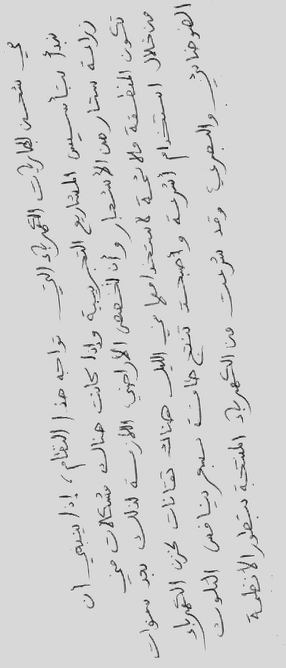 في شحن بطاريات الكهرباء التي تواجه هذا النظام، إذ ينبغي ان
يبدأ بتأسيس المشاريع التجريبية وإذا كانت هناك مشكلات في
زراعة ستار من الأشجار وأن تخصص الأراضي اللازمة لذلك بعد سنوات
تكون المنطقة ملائمة لاستخدامها في الليل هناك تقانات لخزن الكهرباء
من خلال استخدام أشرعة وأصبحت تنتج طاقة بسعر ينافس التلوث
الضوضائي والبصري وقد شرعت من الكهرباء المنتجة بتطوير الانظمة